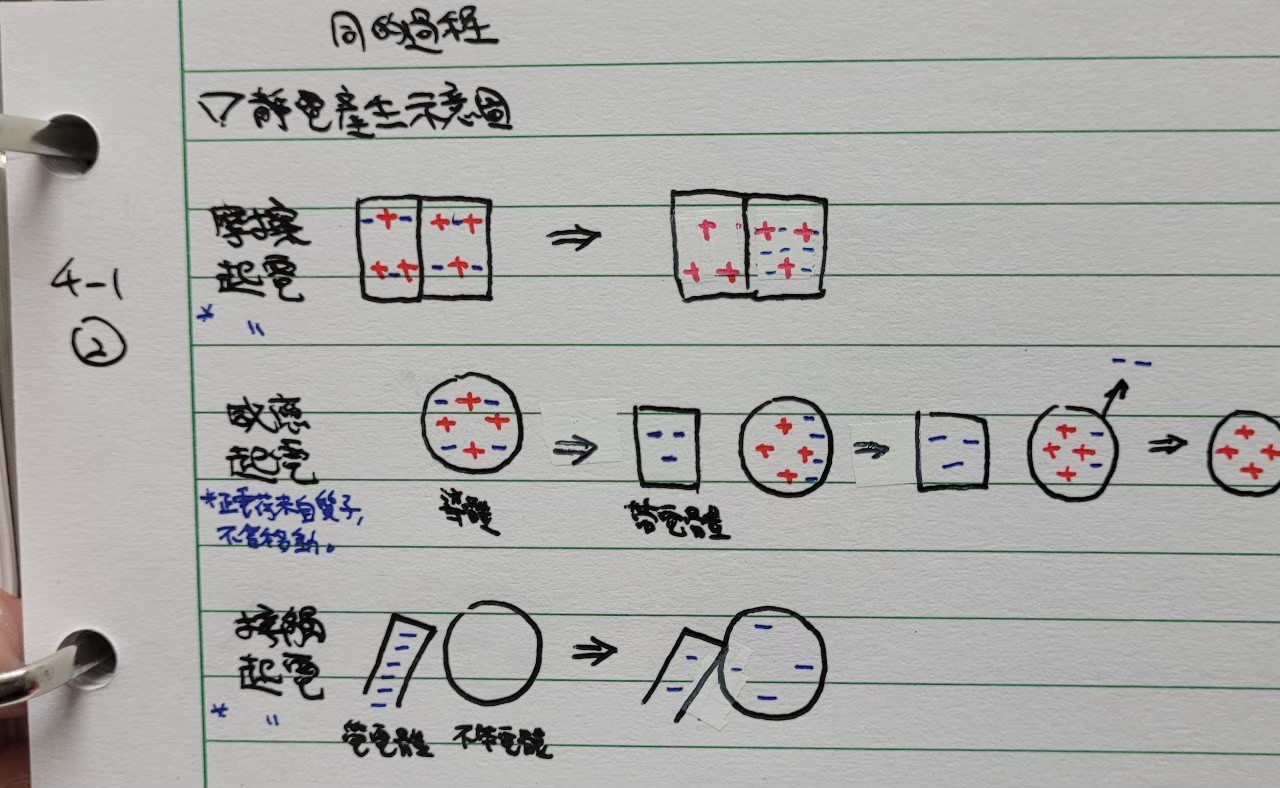 同的過程
▽靜電產生示意圖
摩擦
起電
* 〃
4-1
②
感應
起電
*正電荷來自質子,
不會移動。
導體
帶電體
接觸
起電
* 〃
帶電體 不帶電體